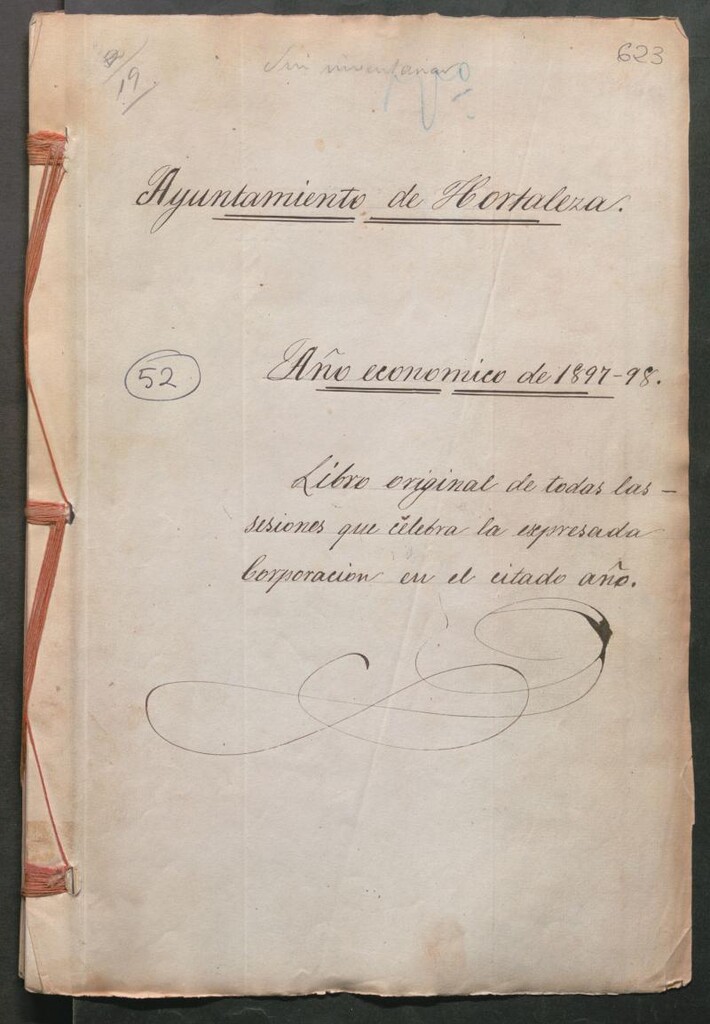 19
Sin inventariar
623
Ayuntamiento de Hortaleza.
52
Año economico de 1897-98.
Libro original de todas las
sesiones que celebra la expresada
Corporacion en el citado año.